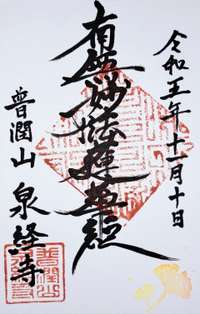 令和五年十一月十日
南無妙法蓮華経
普潤山 泉経寺